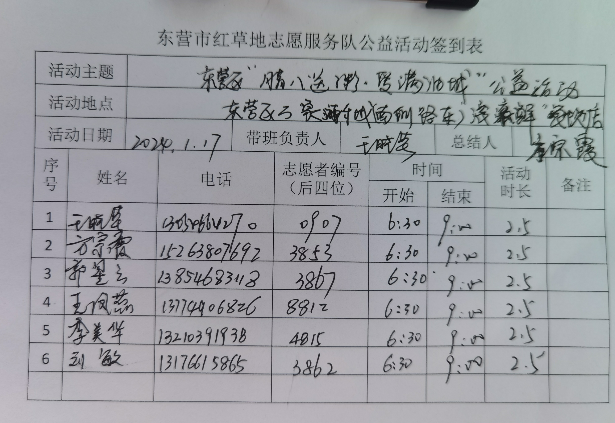 东营市红草地志愿服务队公益活动签到表
活动主题 东营区"腊八送粥·爱满油城"公益活动
活动地点 东营区
活动日期 2024.1.17 带班负责人 总结人
序号 姓名 电话 志愿者编号(后四位) 时间 活动时长 备注
开始 结束
1 0907 6:30 9:00 2.5
2 15263807692 3853 6:30 9:00 2.5
3 13854683118 3867 6:30 9:00 2.5
4 13774906826 8812 6:30 9:00 2.5
5 李美华 13210391938 4815 6:30 9:00 2.5
6 刘敏 13176615865 3862 6:30 9:00 2.5